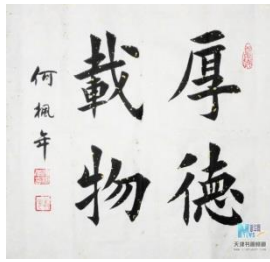 厚德
載物
何楓年
天津书画频道